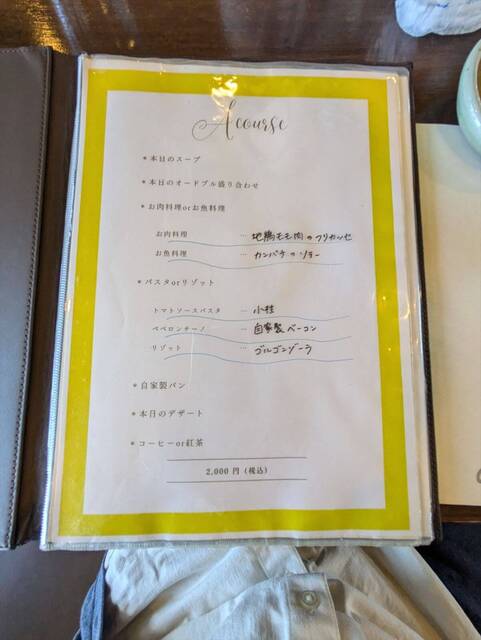 A course
* 本日のスープ
* 本日のオードブル盛り合わせ
* お肉料理orお魚料理
お肉料理 … 地鶏モモ肉のフリカッセ
お魚料理 … カンパチのソテー
* パスタorリゾット
トマトソースパスタ … 小柱
ペペロンチーノ … 自家製ベーコン
リゾット … ゴルゴンゾーラ
* 自家製パン
* 本日のデザート
* コーヒーor紅茶
2,000 円 (税込)